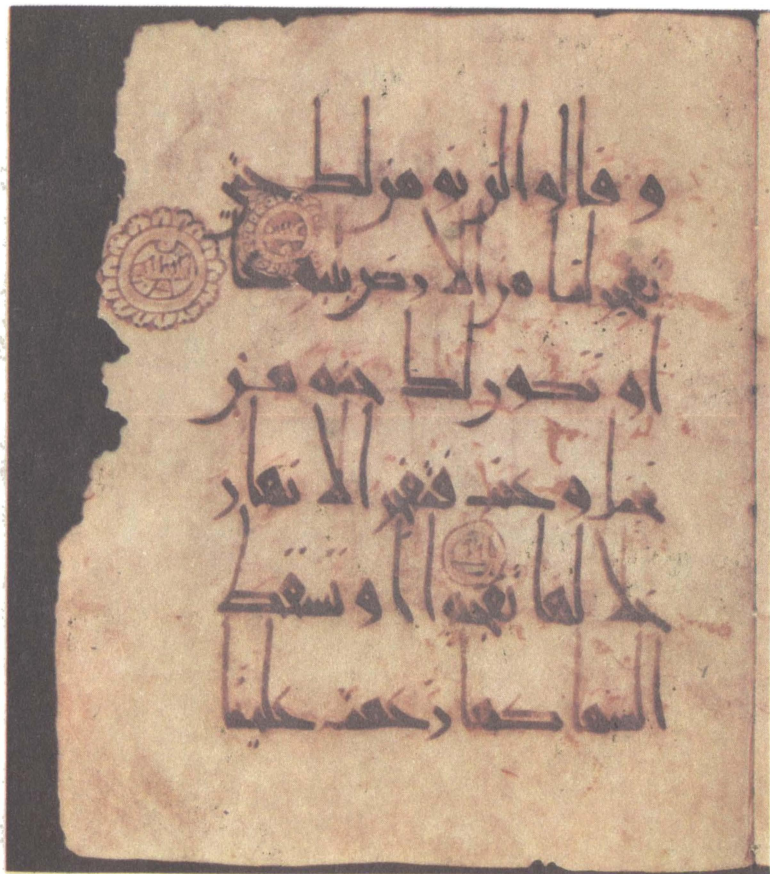 و قالوا لن نومن لك حتى
تفجر لنا من الارض ينبوعا
او تكون لك جنه من
نخيل وعنب فتفجر الانهار
خلالها تفجيرا او تسقط
السما كما زعمت علينا